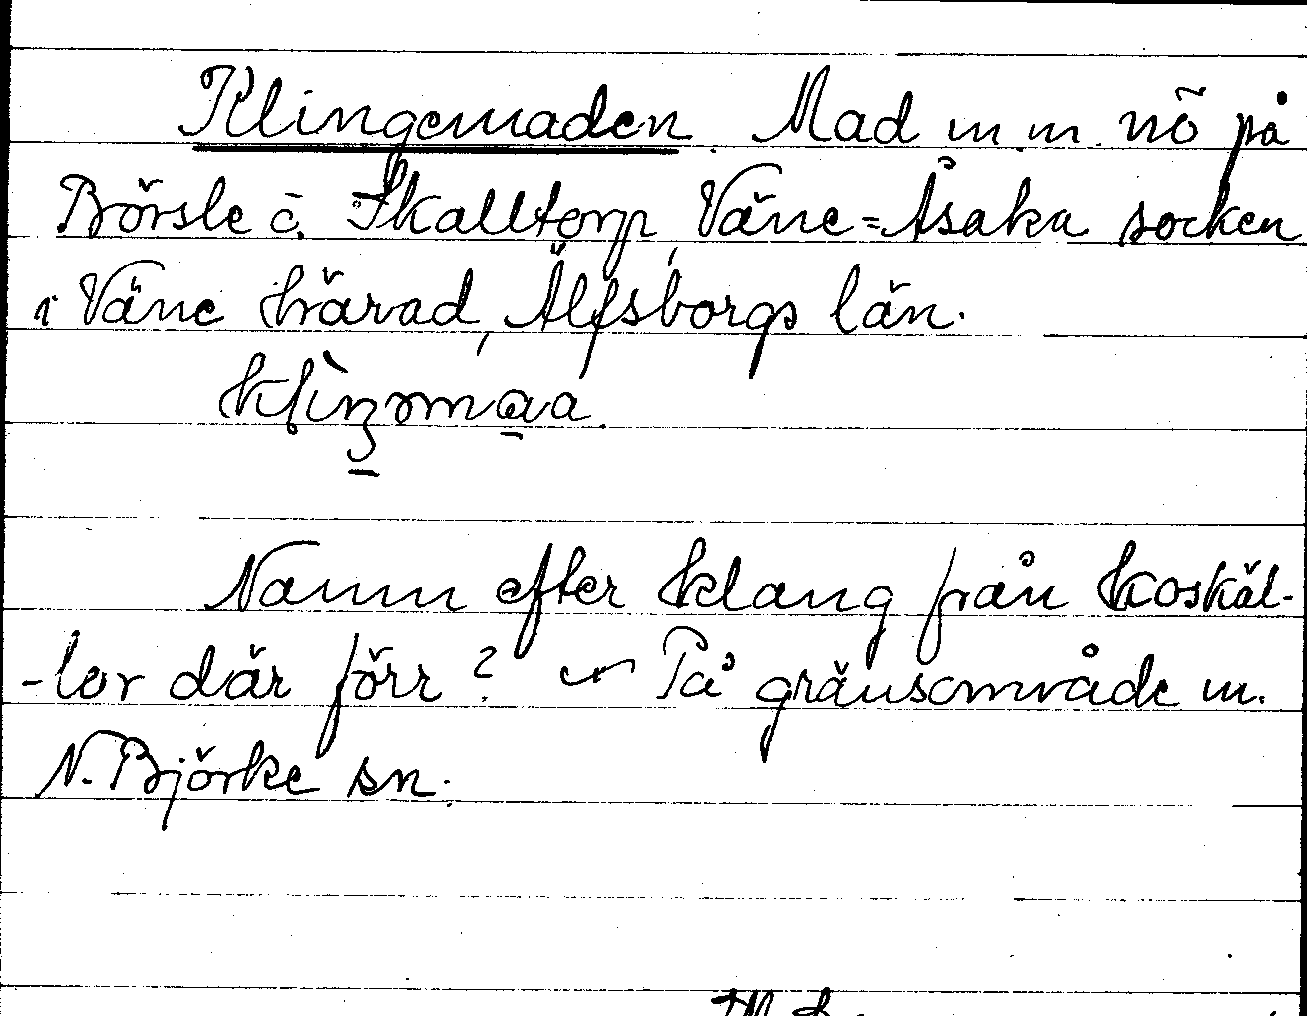 Klingemaden. Mad m.m. nö på
Börsle o. Skalltorp, Väne=Åsaka socken
i Väne härad, Älfsborgs län.
Namn efter klang från koskäl-
-lor där förr? ~ På gränsområde m.
N. Björke sn.